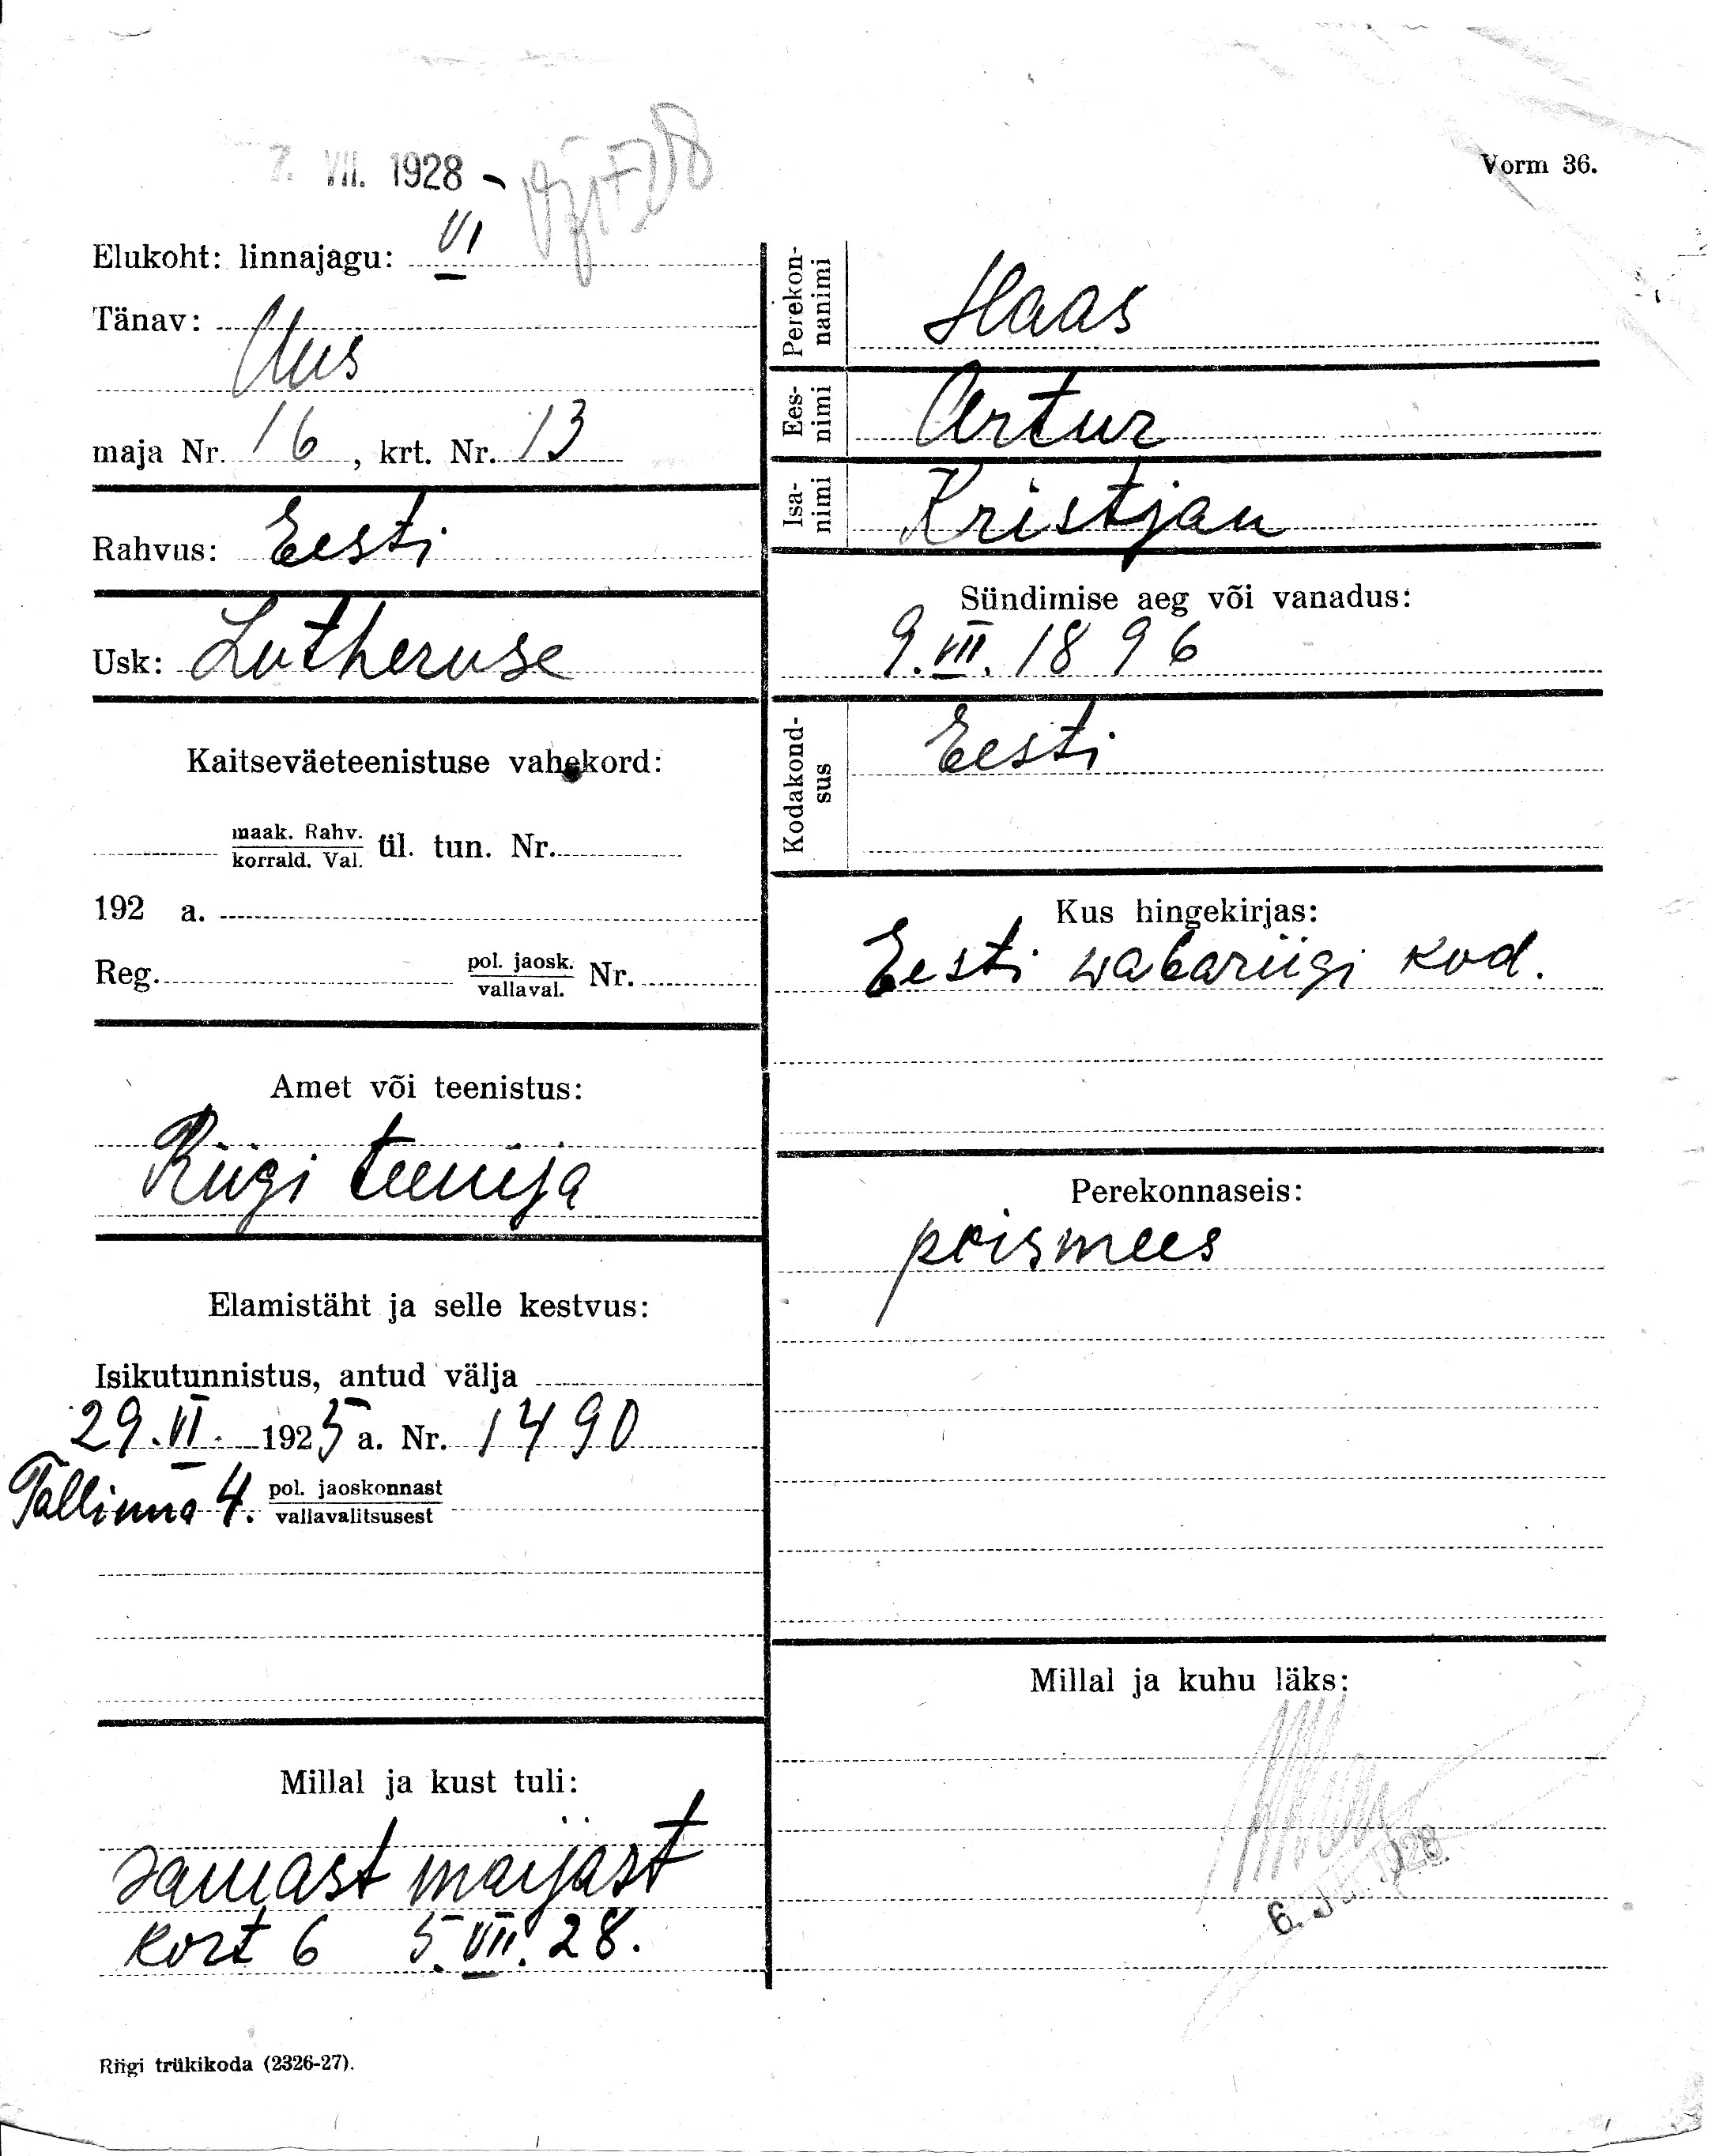 7. VII. 1928
Vorm 36.
Elukoht: linnajagu: VI
Tänav:
Uus
maja Nr. 16, krt. Nr. 13
Rahvus: Eesti
Usk: Lutheruse
Kaitseväeteenistuse vahekord:
maak. Rahv.
korrald. Val. ül. tun. Nr.
192 a.
Reg. pol. jaosk. Nr.
vallaval.
Amet või teenistus:
Riigi teenija
Elamistäht ja selle kestvus:
Isikutunnistus, antud välja
29.VI. 1925 a. Nr. 1490
Tallinna 4. pol. jaoskonnast
vallavalitsusest
Millal ja kust tuli:
samast maijast
kort 6 5.VII.28.
Perekon-
nanimi
Haas
Ees-
nimi
Artur
Isa-
nimi
Kristjan
Sündimise aeg või vanadus:
9.VII.1896
Kodakond-
sus
Eesti
Kus hingekirjas:
Eesti wabariigi kod.
Perekonnaseis:
poismees
Millal ja kuhu läks:
Riigi trükikoda (2326-27).